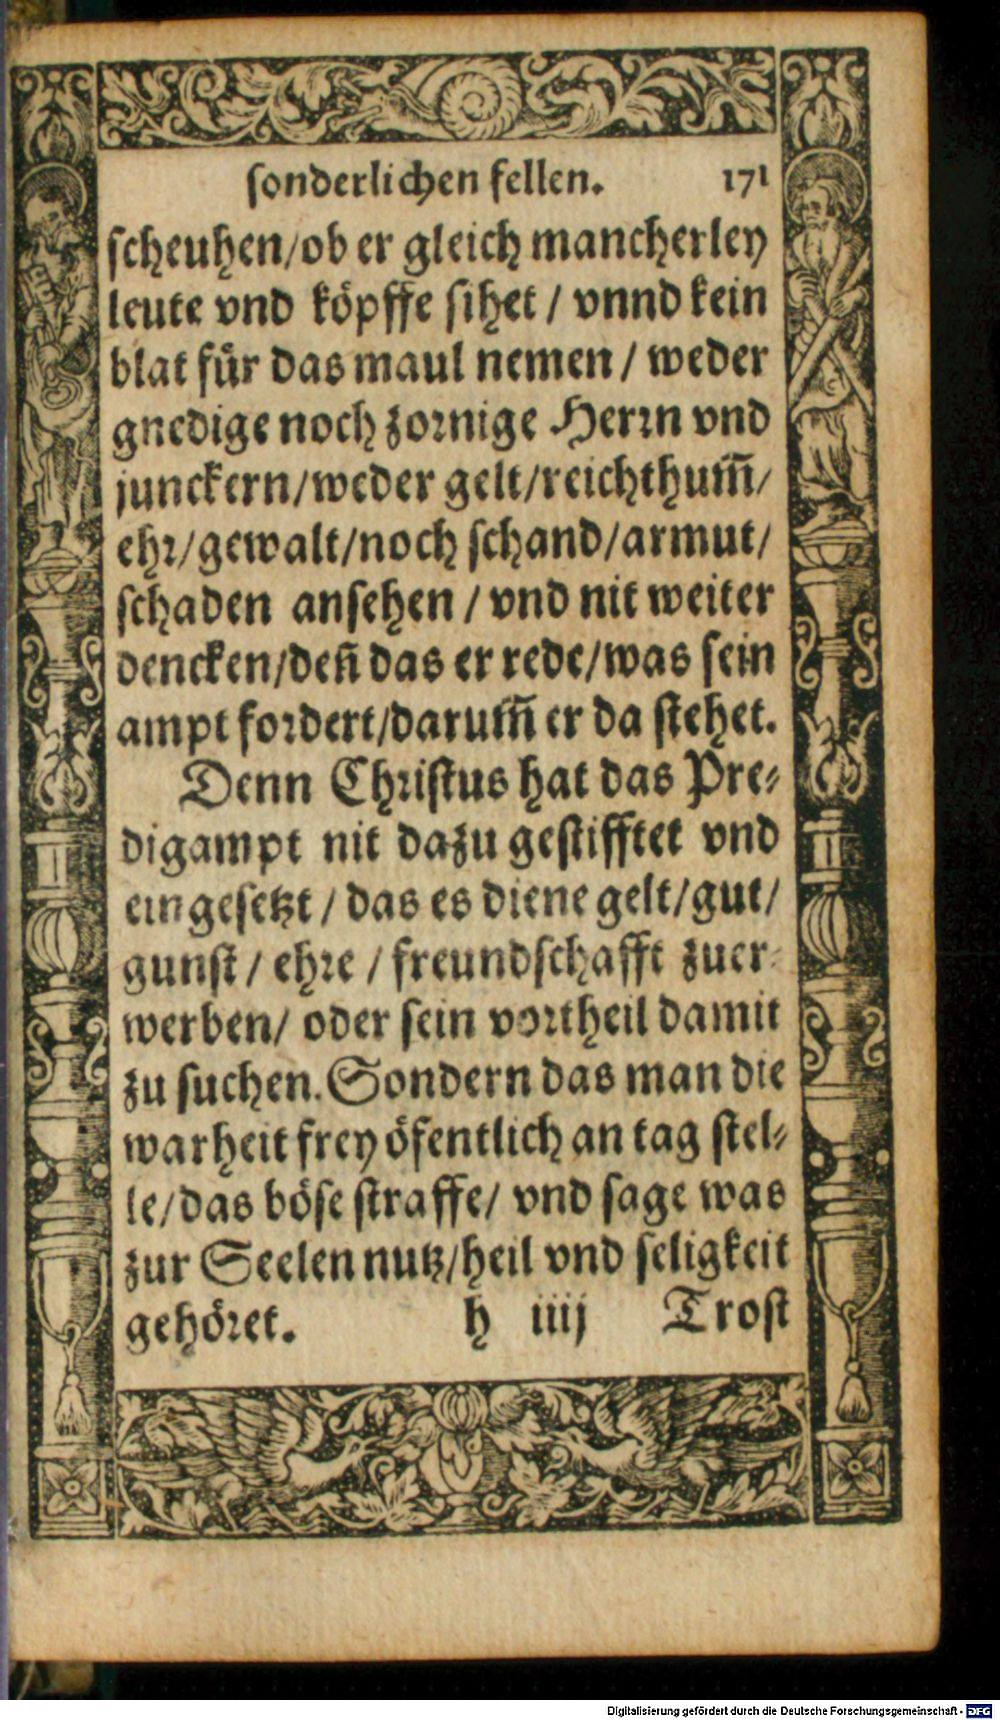 sonderlichen fellen. 171
scheuhen/ob er gleich mancherley
leute vnd köpffe sihet / vnnd kein
blat für das maul nemen / weder
gnedige noch zornige Herrn vnd
junckern/weder gelt/reichthum̃/
ehr/gewalt/noch schand/armut/
schaden ansehen / vnd nit weiter
dencken/deñ das er rede/was sein
ampt fordert/darum̃ er da stehet.
Denn Christus hat das Pre-
digampt nit dazu gestifftet vnd
eingesetzt / das es diene gelt/gut/
gunst / ehre / freundschafft zuer-
werben/ oder sein vortheil damit
zu suchen. Sondern das man die
warheit frey öfentlich an tag stel-
le/das böse straffe/ vnd sage was
zur Seelen nutz/heil vnd seligkeit
gehöret. h iiij Trost
Digitalisierung gefördert durch die Deutsche Forschungsgemeinschaft - DFG